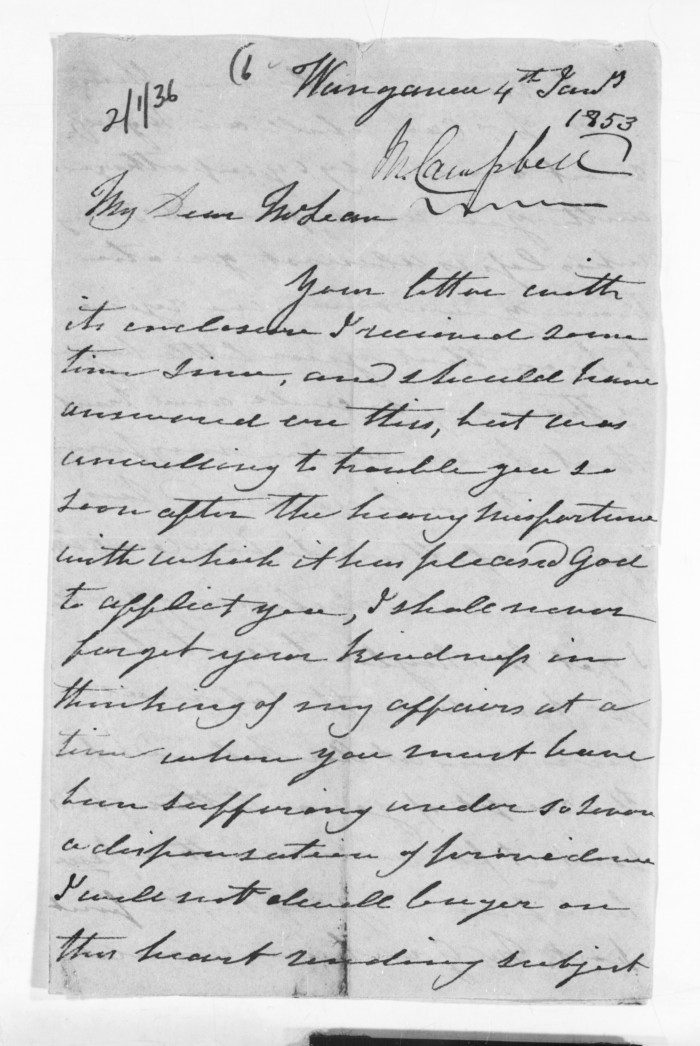 (6
2/1/36
Wanganui 4th Jany
1853
M. Campbell
My Dear McLean
Your letter with
its enclosure I received some
time since, and should have
answered ere this, but was
unwilling to trouble you so
soon after the heavy misfortune
with which it has pleased God
to afflict you, I shall never
forget your kindness in
thinking of my affairs at a
time when you must have
been suffering under so severe
a dispensation of providence
I will not dwell longer on
this heart rending subject